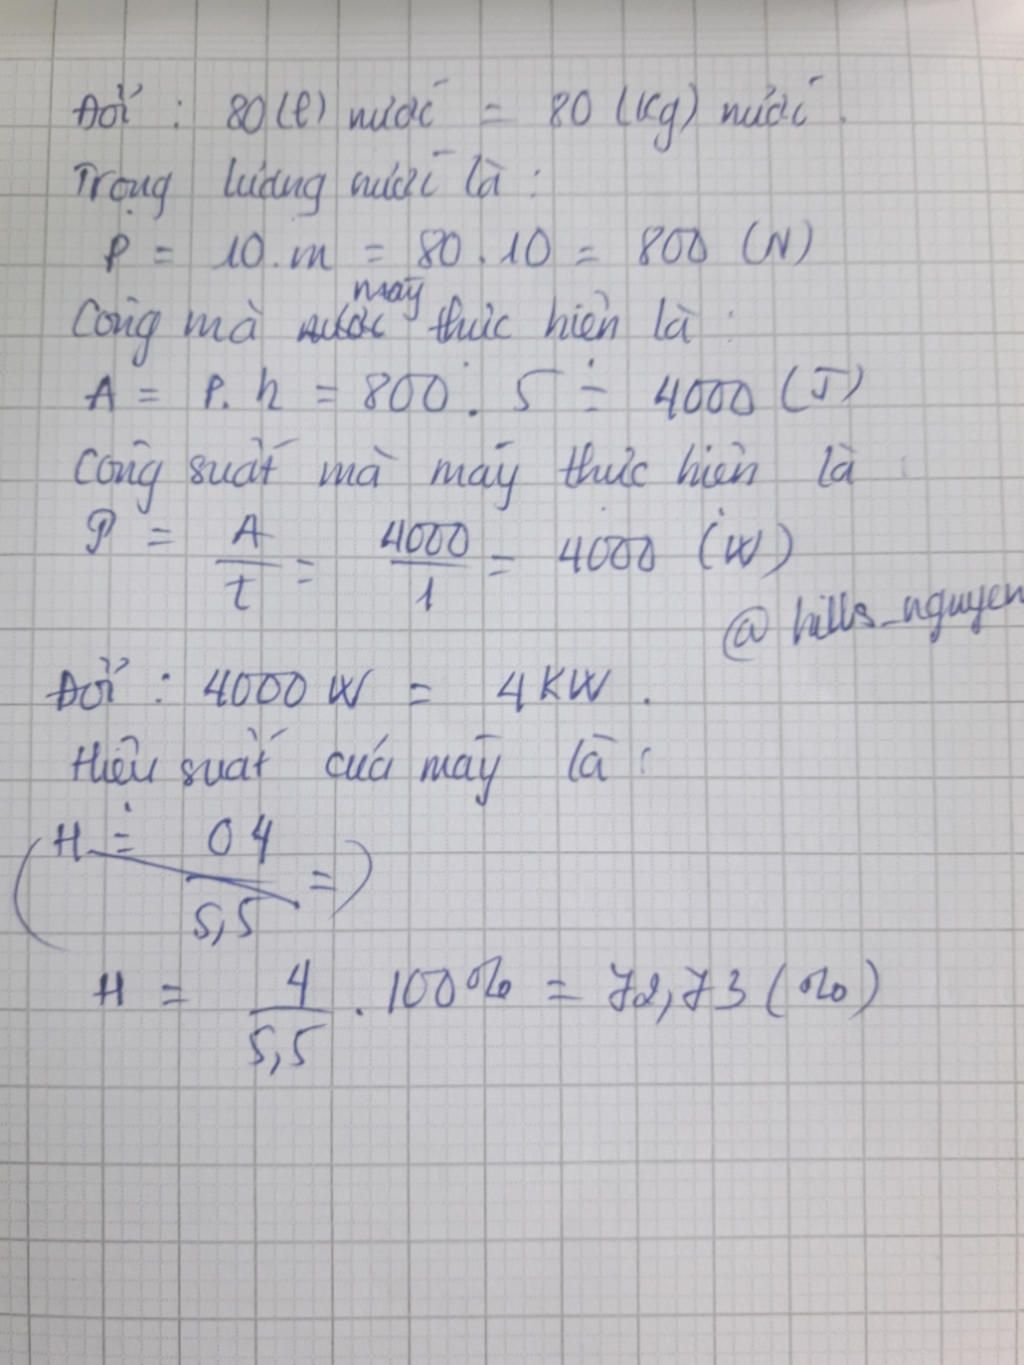 Đổi : 80 (l) nước = 80 (kg) nước.
Trọng lượng nước là :
P = 10.m = 80.10 = 800 (N)
Công mà nước máy thực hiện là :
A = P.h = 800.5 = 4000 (J)
Công suất mà máy thực hiện là :
P = A/t = 4000/1 = 4000 (W)
@hills_nguyen
Đổi : 4000 W = 4 KW.
Hiệu suất của máy là :
(H = 04/5,5 =)
H = 4/5,5 . 100% = 72,73 (%)